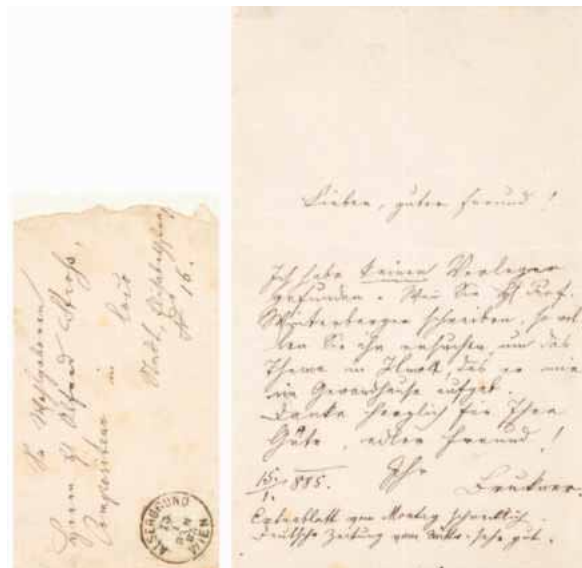 Sr Wohlgeboren
Herrn H Alfred Stross,
Compositeur
in
Stadt,
No 16.
ALSERGRUND
WIEN
Lieber, guter Freund!
Ich habe keinen Verleger
gefunden. Wen Sie H Prof.
Winterberger schreiben, so wol-
len Sie ihn ersuchen, um das
Thema in Fmoll, das er mir
im Gewandhause aufgab.
Danke herzlich für Ihre
Güte, edler Freund!
15./1. 885. Ihr
Bruckner
Extrablatt vom Montag schrecklich.
Deutsche Zeitung vom sehr gut.